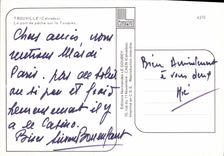 TROUVILLE (Calvados)
Le port de pêche sur la Touques
Chers amis nous
rentrons Mardi
Paris. pas de soleil
ou si peu et froid
heureusement il y
a le Casino.
Bises
Bien Amicalement
à vous deux